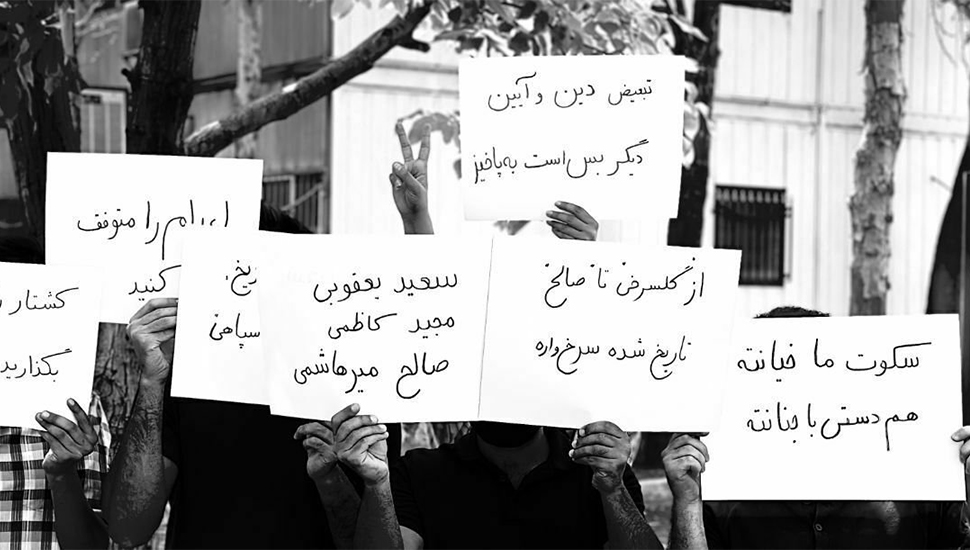 تبعیض دین و آیین
دیگر بس است به پاخیز
را متوقف
کنید
کشتار
بگذارید
سپاهی
سعید یعقوبی
مجید کاظمی
صالح میرهاشمی
از گلسرخی تا صالح
تاریخ شده سرخ‌واره
سکوت ما خیانته
هم‌دستی با جنایته